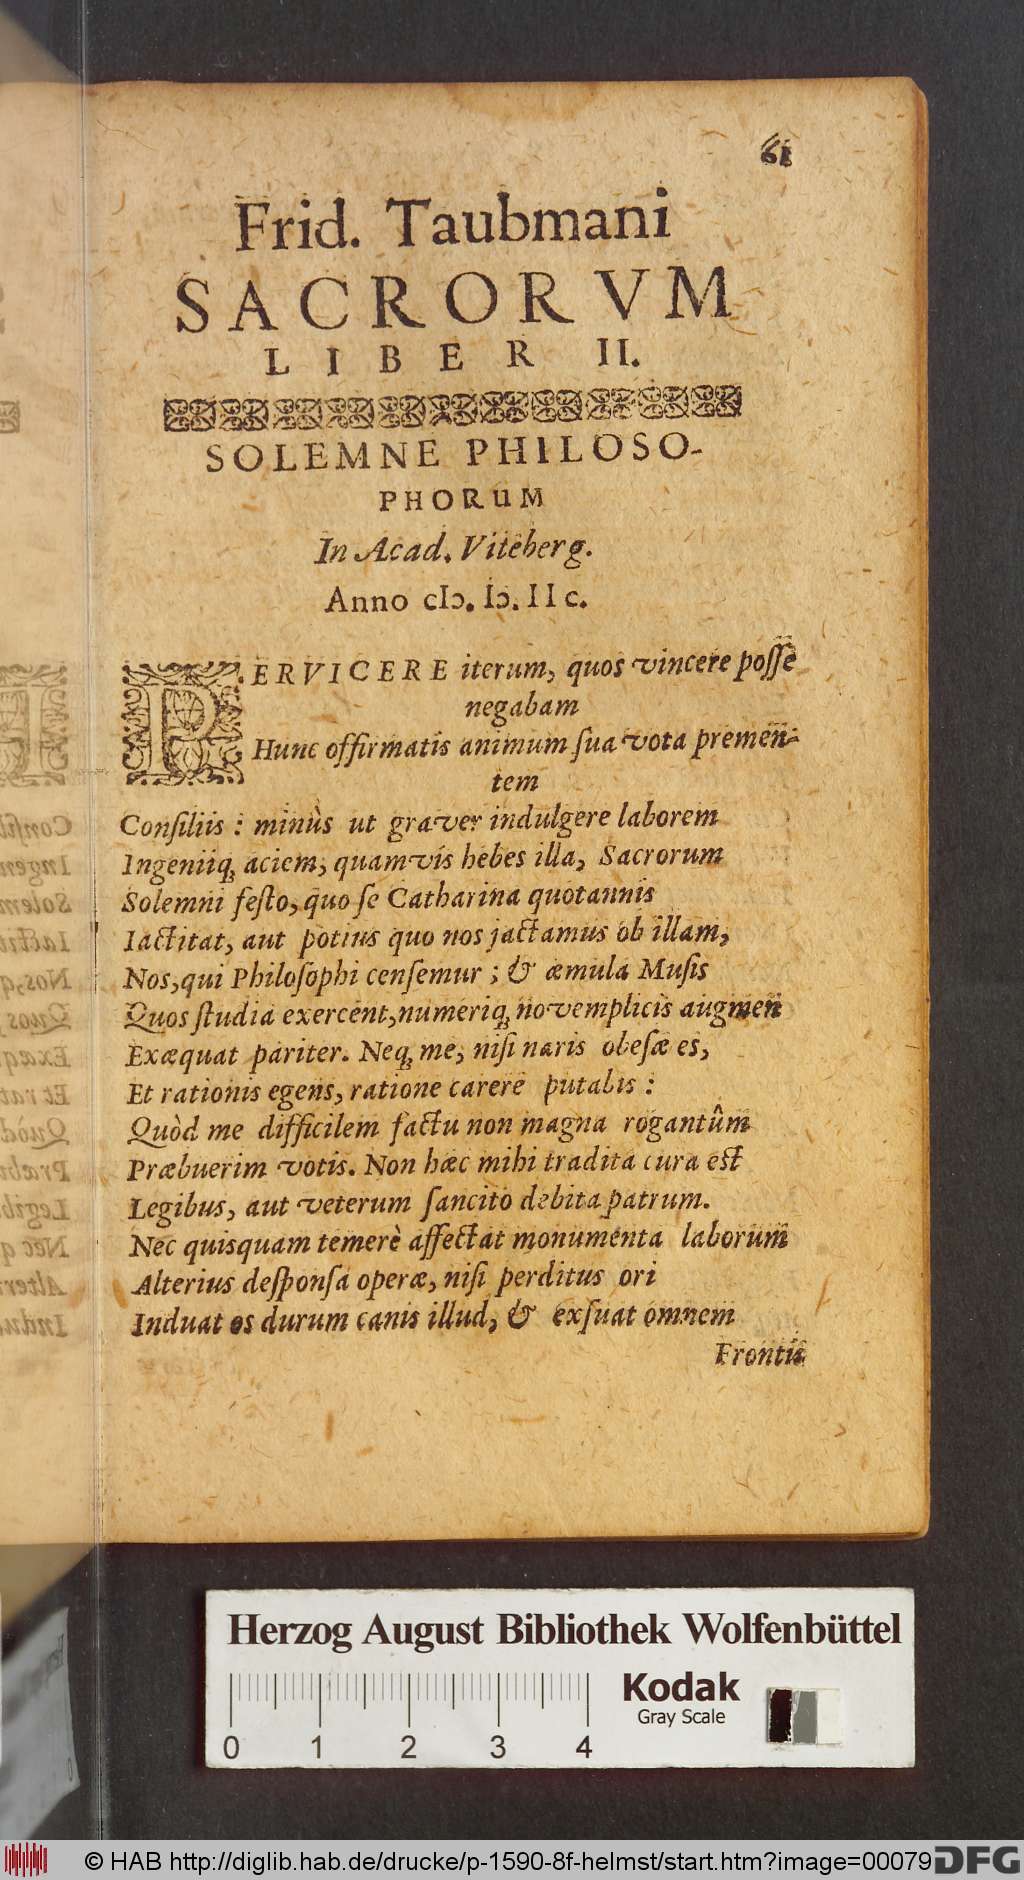 61
Frid. Taubmani
SACRORVM
LIBER II.
SOLEMNE PHILOSO-
PHORUM
In Acad. Viteberg.
Anno cIɔ. Iɔ. IIc.
PERVICERE iterum, quos vincere posse
negabam
Hunc offirmatis animum sua vota premen-
tem
Consiliis : minùs ut graver indulgere laborem
Ingeniiq; aciem, quamvis hebes illa, Sacrorum
Solemni festo, quo se Catharina quotannis
Iactitat, aut potius quo nos jactamus ob illam,
Nos, qui Philosophi censemur ; & æmula Musis
Quos studia exercent, numeriq; novemplicis augmen
Exæquat pariter. Neq; me, nisi naris obesæ es,
Et rationis egens, ratione carere putabis :
Quòd me difficilem factu non magna rogantûm
Præbuerim votis. Non hæc mihi tradita cura est
Legibus, aut veterum sancito debita patrum.
Nec quisquam temerè affectat monumenta laborum
Alterius desponsa operæ, nisi perditus ori
Induat os durum canis illud, & exsuat omnem
Frontis
Herzog August Bibliothek Wolfenbüttel
0 1 2 3 4
Kodak
Gray Scale
© HAB http://diglib.hab.de/drucke/p-1590-8f-helmst/start.htm?image=00079
DFG